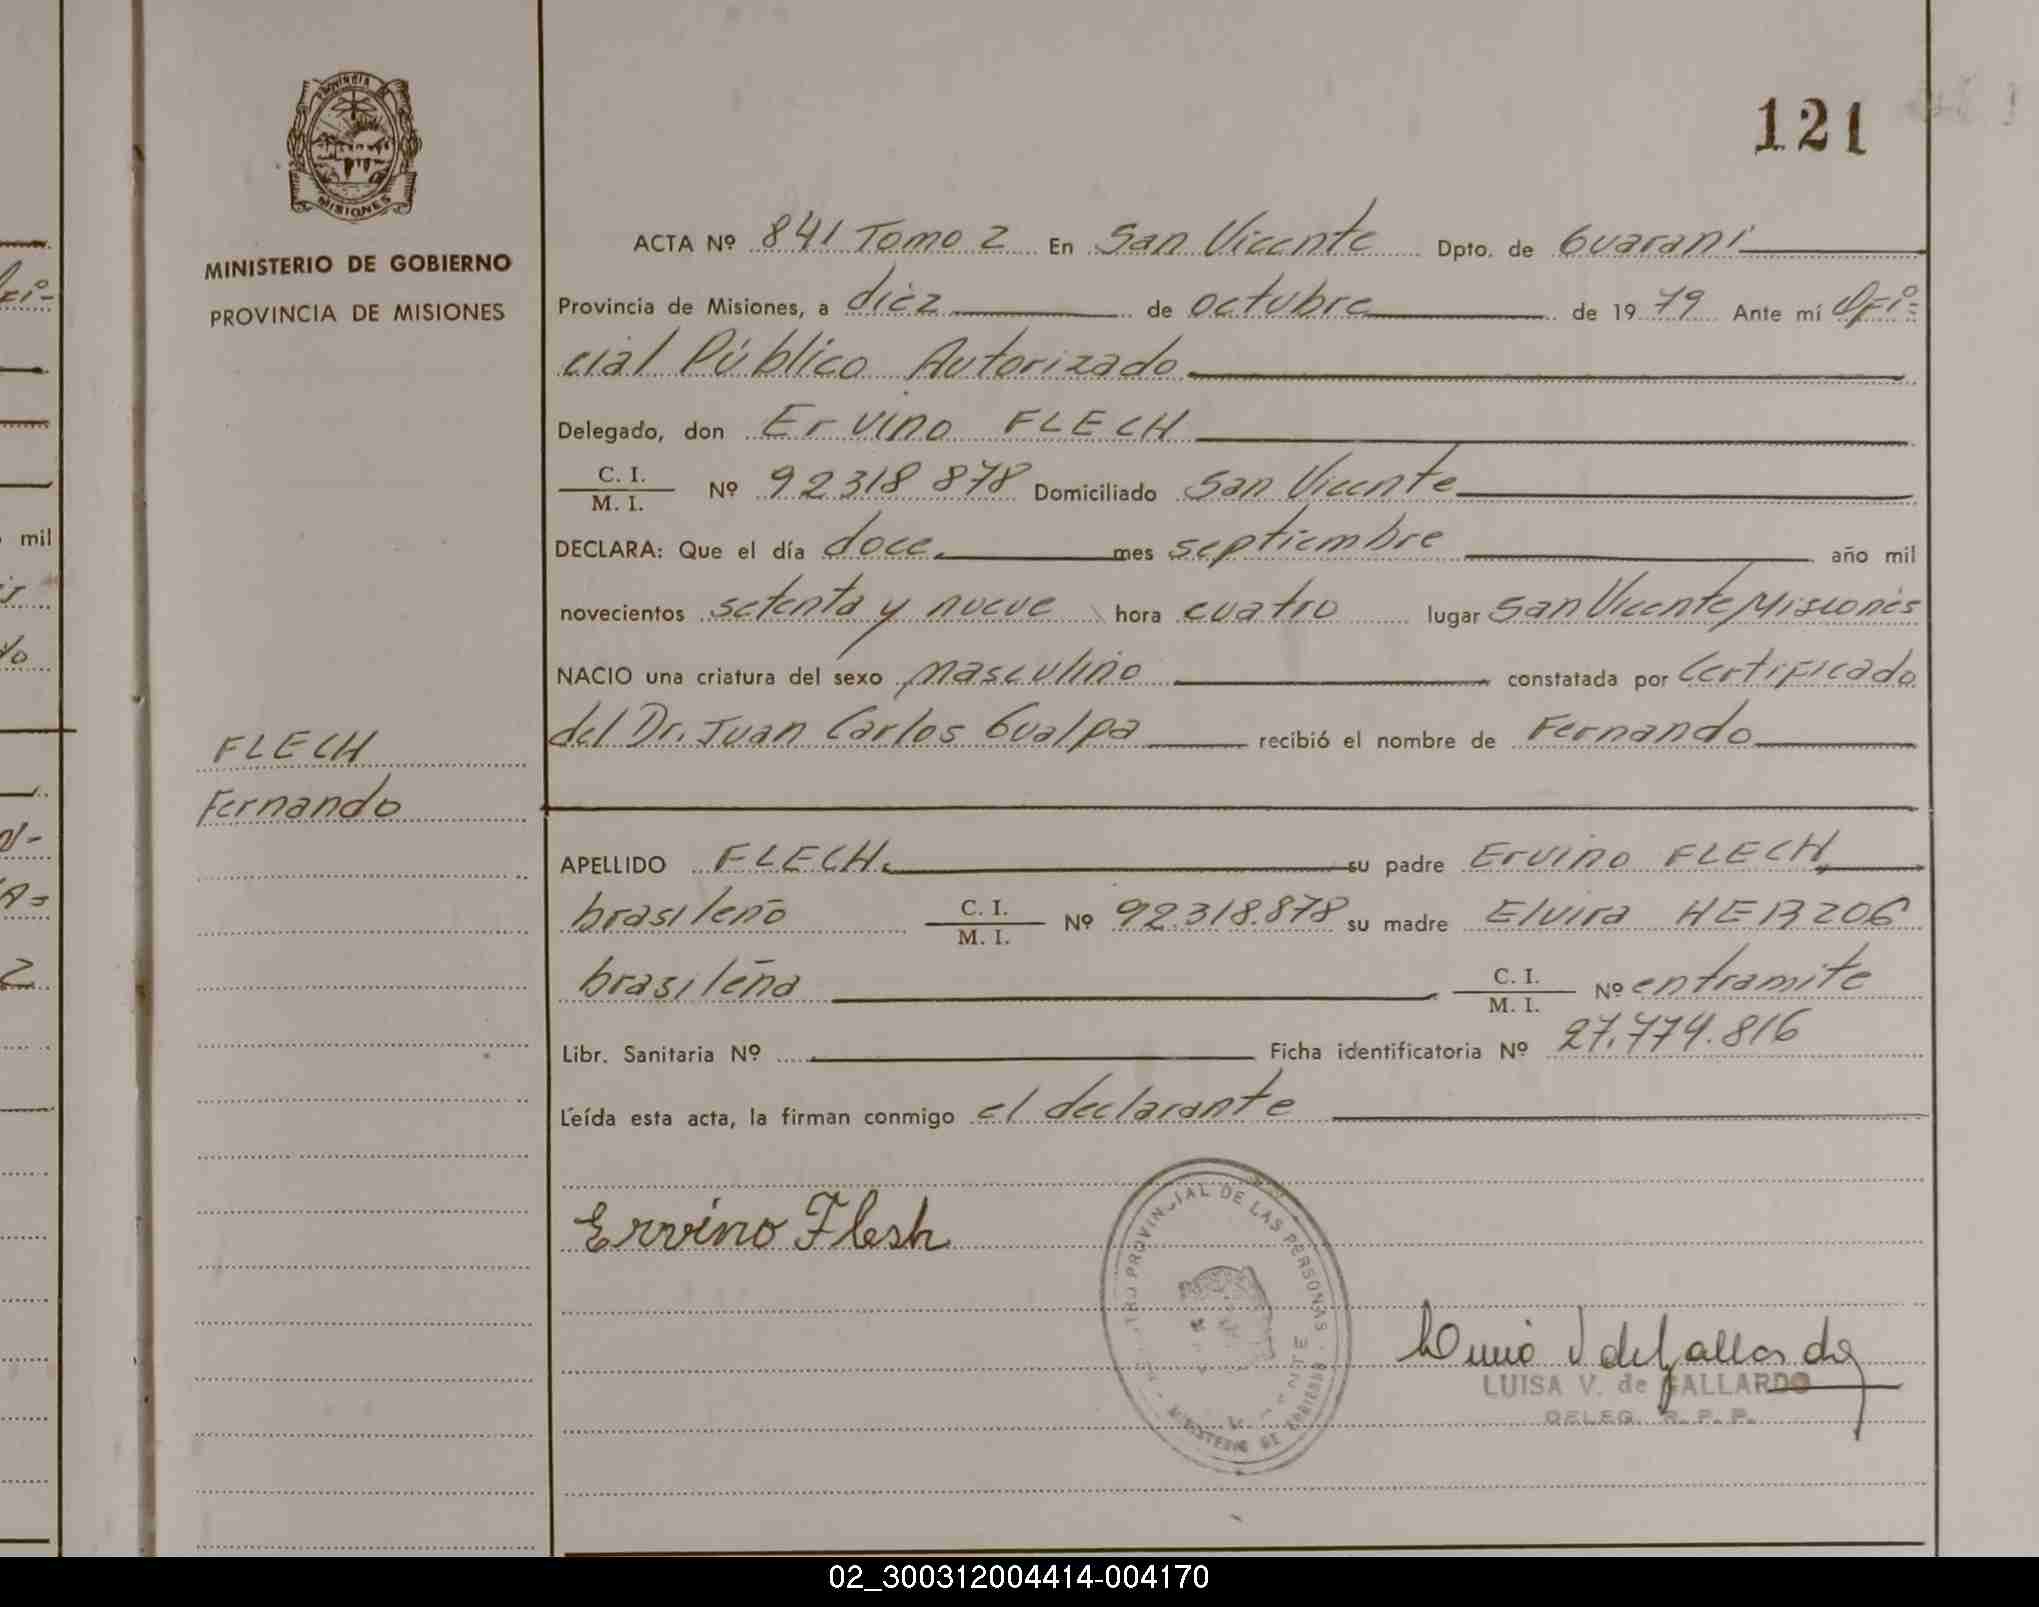 121
Provincia de
MISIONES
MINISTERIO DE GOBIERNO
PROVINCIA DE MISIONES
ACTA Nº 841 Tomo 2 En San Vicente Dpto. de Guaraní
Provincia de Misiones, a diez de octubre de 1979 Ante mí Ofi-
cial Público Autorizado
Delegado, don Ervino FLECH
C. I.
M. I. Nº 92318878 Domiciliado San Vicente
DECLARA: Que el día doce mes septiembre año mil
novecientos setenta y nueve hora cuatro lugar San Vicente, Misiones
NACIO una criatura del sexo masculino constatada por Certificado
del Dr. Juan Carlos Gualpa recibió el nombre de Fernando
FLECH
Fernando
APELLIDO FLECH su padre Ervino FLECH
brasileño C. I.
M. I. Nº 92.318.878 su madre Elvira HERZOG
brasileña C. I.
M. I. Nº entramite
Libr. Sanitaria Nº Ficha identificatoria Nº 27.774.816
Leída esta acta, la firman conmigo el declarante
Ervino Flesh
PROVINCIAL DE LAS PERSONAS
MINISTERIO DE GOBIERNO
LUISA V. de GALLARDO
DELEG. R. P. P.
mil
02_300312004414-004170